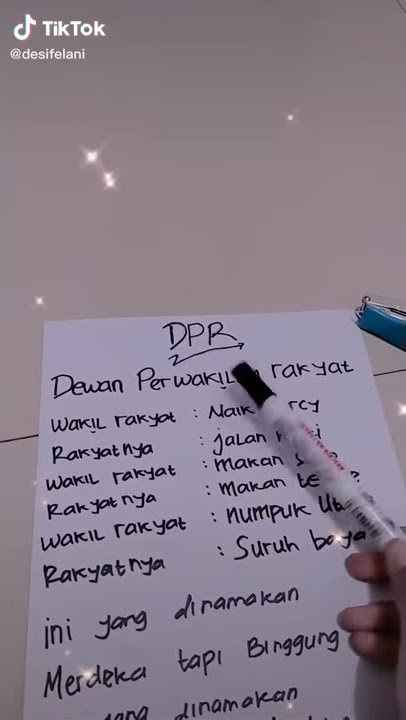 TikTok
@desifelani
DPR
Dewan Perwakil rakyat
Wakil rakyat : Naik
Rakyatnya : jalan
Wakil rakyat : makan
Rakyatnya : makan
Wakil rakyat : numpuk
Rakyatnya : Suruh
ini yang dinamakan
Merdeka tapi Binggung
yang dinamakan